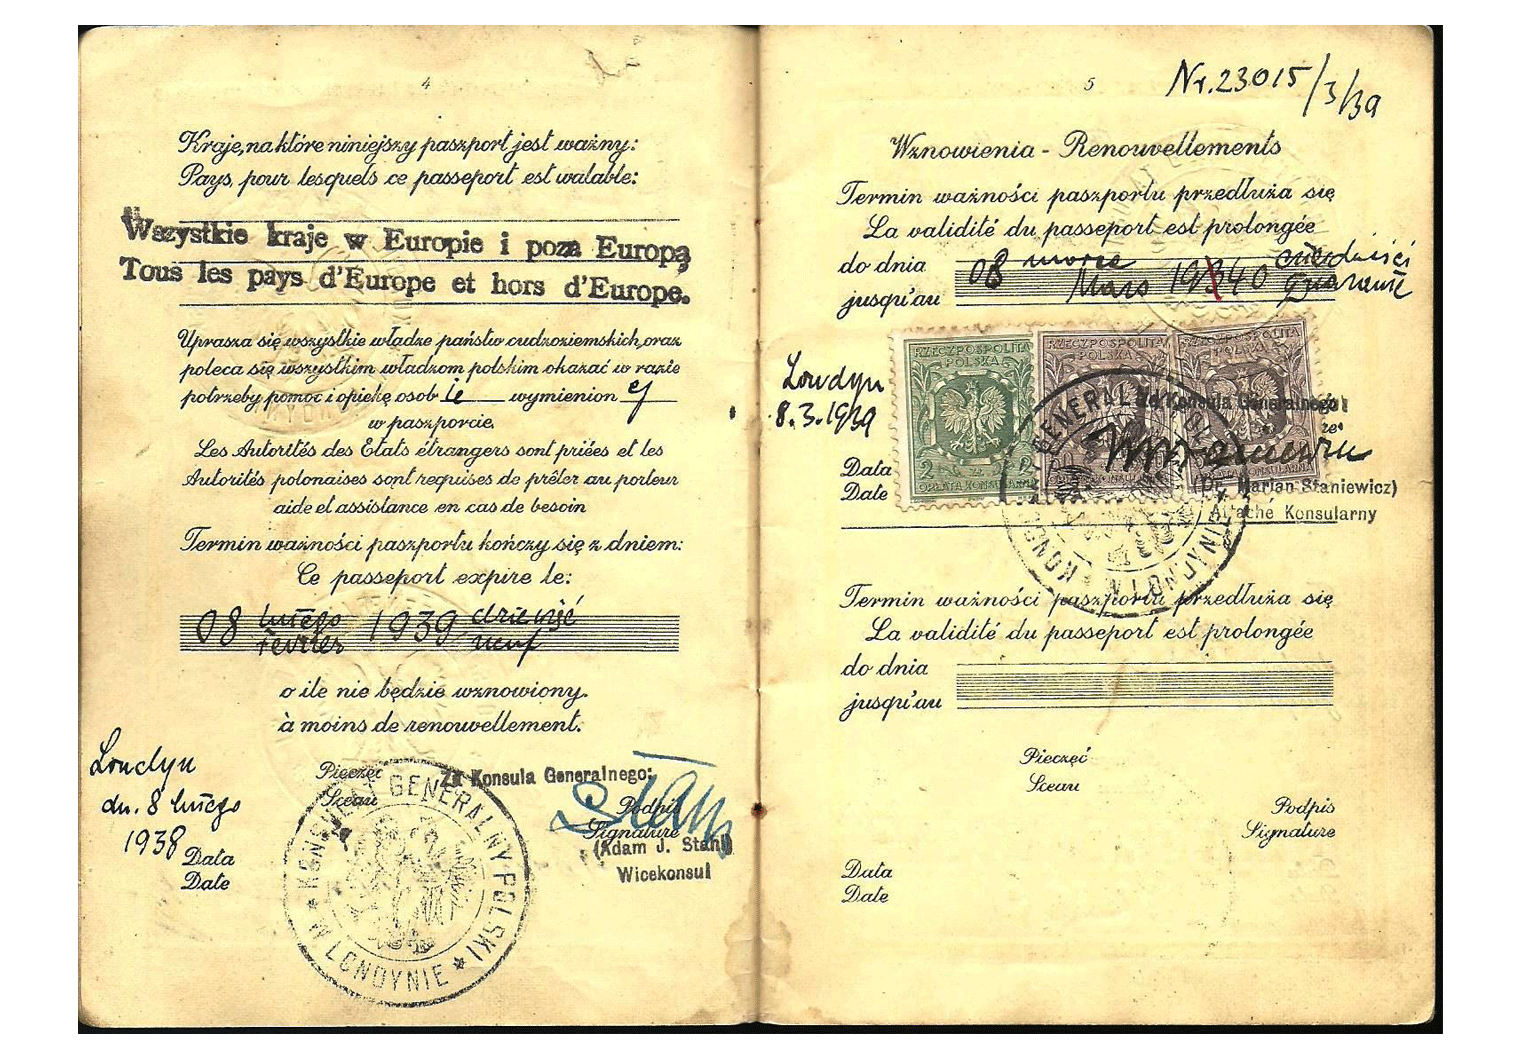 4
Kraje, na które niniejszy paszport jest ważny:
Pays, pour lesquels ce passeport est walable:
Wszystkie kraje w Europie i poza Europą
Tous les pays d'Europe et hors d'Europe.
Uprasza się wszystkie władze państw cudzoziemskich, oraz
poleca się wszystkim władzom polskim okazać w razie
potrzeby pomoc i opiekę osob ie wymienion ej
w paszporcie.
Les Autorités des Etats étrangers sont priées et les
Autorités polonaises sont requises de prêter au porteur
aide et assistance en cas de besoin
Termin ważności paszportu kończy się z dniem:
Ce passeport expire le:
08 lutego 1939 dziewięć
février neuf
o ile nie będzie wznowiony.
à moins de renouvellement.
Londyn
dn. 8 lutego
1938
Data
Date
Pieczęć
Sceau
KONSULAT GENERALNY POLSKI
W LONDYNIE
Za Konsula Generalnego:
Podpis
Signature
(Adam J. Stahl)
Wicekonsul
5
Nr. 23015/3/39
Wznowienia - Renouvellements
Termin ważności paszportu przedłuża się
La validité du passeport est prolongée
do dnia
jusqu'au
08 marca 1940 czterdzieści
Mars quarante
Londyn
8.3.1939
Data
Date
RZECZPOSPOLITA
POLSKA
2
OPŁATA KONSULARNA
RZECZPOSPOLITA
POLSKA
OPŁATA KONSULARNA
RZECZPOSPOLITA
POLSKA
OPŁATA KONSULARNA
Konsula Generalnego:
(Dr. Marian Staniewicz)
Attaché Konsularny
Termin ważności paszportu przedłuża się
La validité du passeport est prolongée
do dnia
jusqu'au
Pieczęć
Sceau
Podpis
Signature
Data
Date